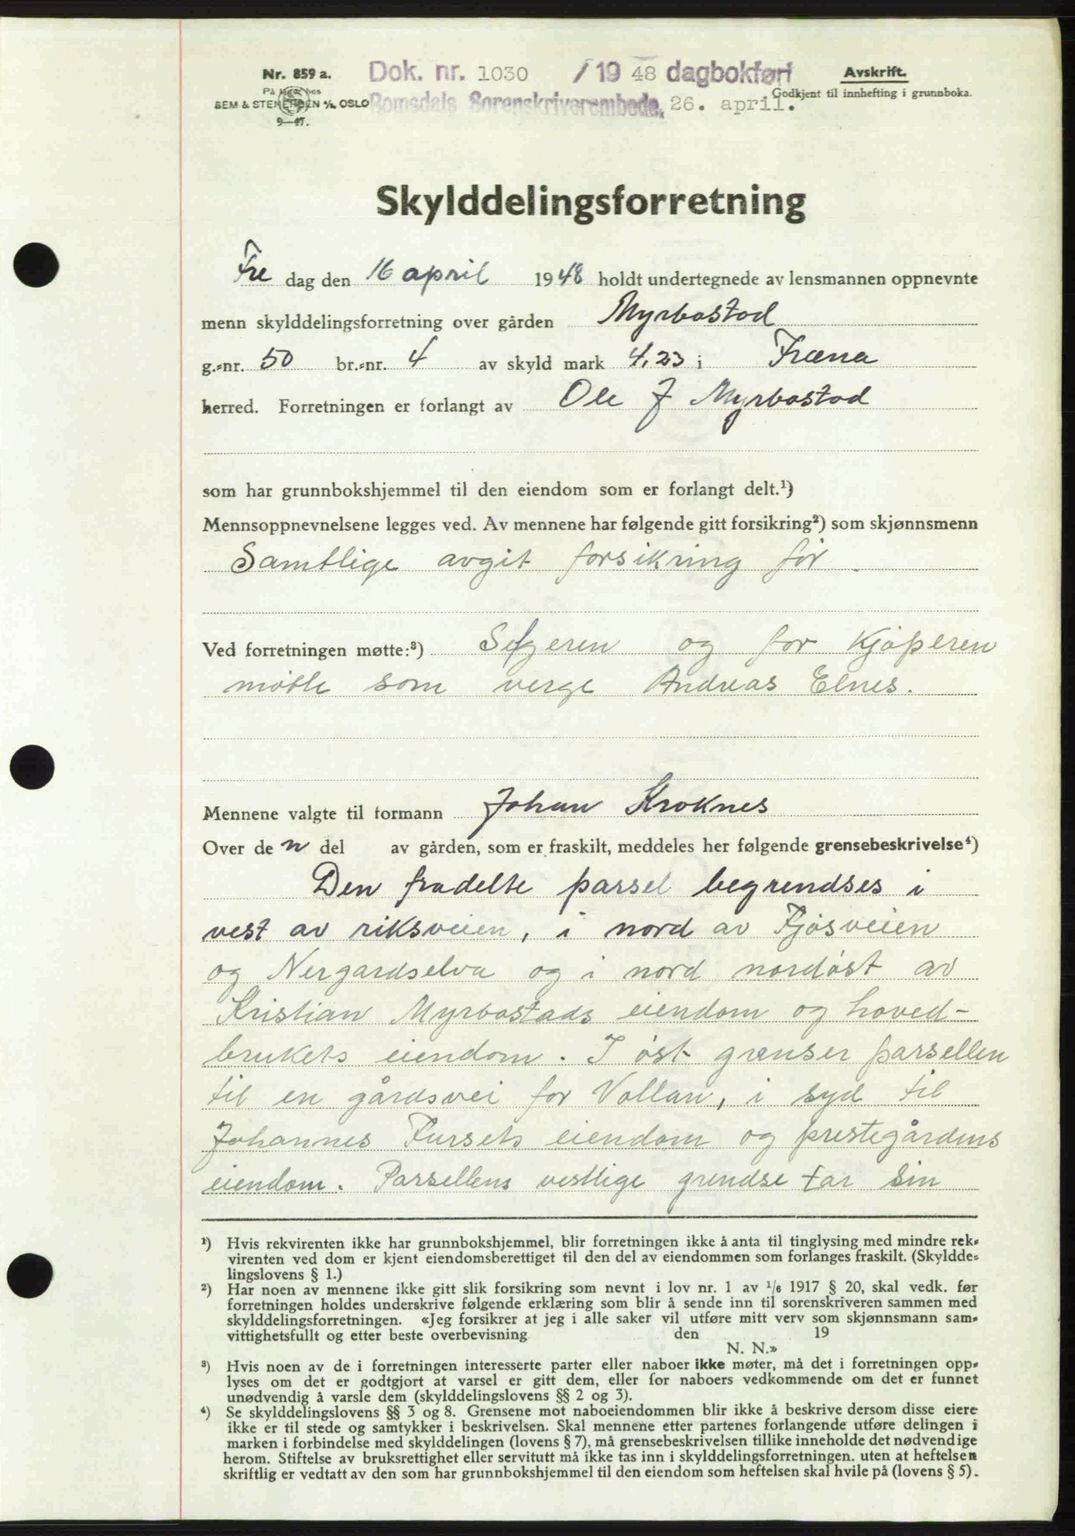 Nr. 859 a.
Dok. nr. 1030 /1948 dagbokført
Avskrift.
Godkjent til innhefting i grunnboka.
SEM & STENERSEN A/S, OSLO
Romsdals Sorenskriverembede, 26. april.
9—47.
Skylddelingsforretning
Fre dag den 16 april 1948 holdt undertegnede av lensmannen oppnevnte
menn skylddelingsforretning over gården Myrbostad
g.-nr. 50 br.-nr. 4 av skyld mark 4,23 i Fræna
herred. Forretningen er forlangt av Ole J Myrbostad
som har grunnbokshjemmel til den eiendom som er forlangt delt.¹)
Mennsoppnevnelsene legges ved. Av mennene har følgende gitt forsikring²) som skjønnsmenn
Samtlige avgit forsikring før.
Ved forretningen møtte:³) Selgeren og for Kjøperen
møtte som verge Andreas Elnes.
Mennene valgte til formann Johan Kroknes
Over de n del av gården, som er fraskilt, meddeles her følgende grensebeskrivelse⁴)
Den fradelte parsel begrendses i
vest av riksveien, i nord av Fjøsveien
og Nergardselva og i nord nordøst av
Kristian Myrbostads eiendom og hoved-
brukets eiendom. I øst grenser parsellen
til en gårdsvei for Vollan, i syd til
Johannes Fursets eiendom og prestegårdens
eiendom. Parsellens vestlige grendse tar sin
¹) Hvis rekvirenten ikke har grunnbokshjemmel, blir forretningen ikke å anta til tinglysing med mindre rek-
virenten ved dom er kjent eiendomsberettiget til den del av eiendommen som forlanges fraskilt. (Skyldde-
lingslovens § 1.)
²) Har noen av mennene ikke gitt slik forsikring som nevnt i lov nr. 1 av ¹/₆ 1917 § 20, skal vedk. før
forretningen holdes underskrive følgende erklæring som blir å sende inn til sorenskriveren sammen med
skylddelingsforretningen. «Jeg forsikrer at jeg i alle saker vil utføre mitt verv som skjønnsmann sam-
vittighetsfullt og etter beste overbevisning den 19
N. N.»
³) Hvis noen av de i forretningen interesserte parter eller naboer ikke møter, må det i forretningen opp-
lyses om det er godtgjort at varsel er gitt dem, eller for naboers vedkommende om det er funnet
unødvendig å varsle dem (skylddelingslovens §§ 2 og 3).
⁴) Se skylddelingslovens §§ 3 og 8. Grensene mot naboeiendommen blir ikke å beskrive dersom disse eiere
ikke er til stede og samtykker i beskrivelsen. Skal mennene etter partenes forlangende utføre delingen i
marken i forbindelse med skylddelingen (lovens § 7), må grensebeskrivelsen tillike inneholde det nødvendige
herom. Stiftelse av bruksrettighet eller servitutt må ikke tas inn i skylddelingsforretningen. uten at heftelsen
skriftlig er vedtatt av den som har grunnbokshjemmel til den eiendom som heftelsen skal hvile på (lovens § 5).